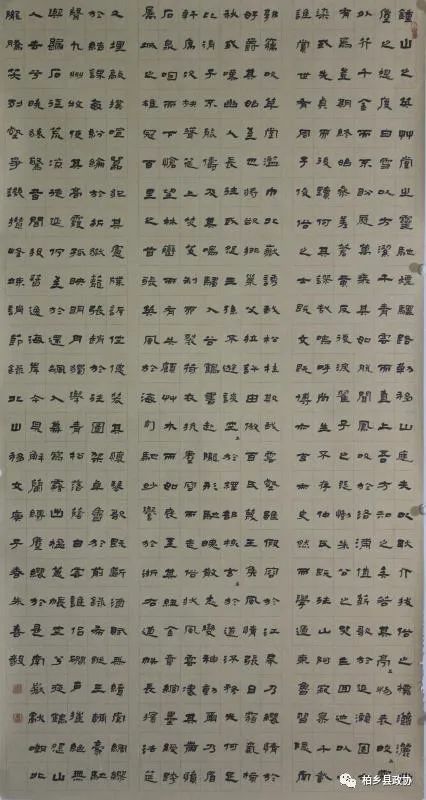 鍾山之英艸堂之靈馳煙驛路勒移山庭夫以耿介拔俗之標瀟灑出
塵之想度白雪以方潔干青雲而直上吾方知之矣若其亭〻物表皎〻霞
外芥千金而不盼屣萬乘其如脫聞鳳吹於洛浦值薪歌於延瀨固亦
有焉豈期終始參差蒼黃翻覆淚翟子之悲慟朱公之哭乍迴跡以心
染或先貞而後黷何其謬哉嗚呼尚生不存仲氏既往山阿寂寥千載
誰賞世有周子俊俗之士既文既博亦玄亦史然而學遁東魯習隱南
郭竊吹草堂濫巾北嶽誘我松桂欺我雲壑雖假容於江皋乃纓情於
好爵其始至也將欲排巢父拉許由傲百氏蔑王侯風情張日霜氣橫
秋或嘆幽人長往或怨王孫不遊談空〻於釋部核玄〻於道流務光何足
比涓子不能儔及其鳴騶入谷鶴書赴隴形馳魄散志變神動爾乃眉
軒席次袂聳筵上焚芰製而裂荷衣抗塵容而走俗狀風雲凄其帶憤
石泉咽而下愴望林巒而有失顧草木而如喪至其紐金章綰墨綬跨
屬城之雄冠百里之首張英風於海甸馳妙譽於浙右道帙長擯法筵
久埋敲撲喧囂犯其慮牒訴倥傯裝其懷琴歌既斷酒賦無續常綢繆
於結課每紛綸於折獄籠張趙於往圖架卓魯於前錄希蹤三輔豪馳
聲九州牧使其高霞孤映明月獨舉青松落蔭白雲誰侶磵戶摧絕無
與歸石徑荒涼徒延佇至於還飆入幕寫霧出楹蕙帳空兮夜鶴怨山
人去兮曉猿驚昔聞投簪逸海岸今見解蘭縛塵纓於是南嶽獻嘲北
隴騰笑列壑爭譏攢峰竦誚節錄北山移文庚子春朱喜毅
柏乡县政协